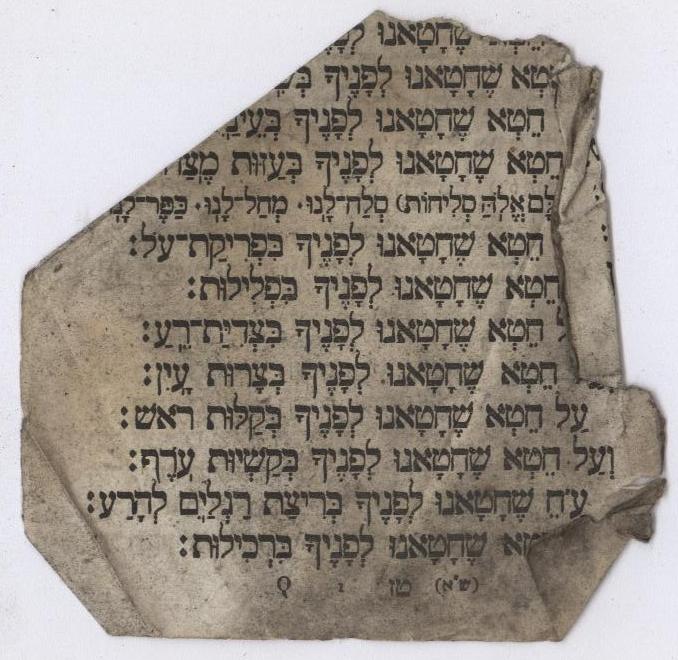 שֶׁחָטָאנוּ
שֶׁחָטָאנוּ לְפָנֶיךָ
חֵטְא שֶׁחָטָאנוּ לְפָנֶיךָ
חֵטְא שֶׁחָטָאנוּ לְפָנֶיךָ בְּעַזּוּת
אֱלוֹהַּ סְלִיחוֹת) סְלַח־לָנוּ· מְחַל־לָנוּ· כַּפֶּר־לָנוּ
חֵטְא שֶׁחָטָאנוּ לְפָנֶיךָ בִּפְרִיקַת־עֹל:
חֵטְא שֶׁחָטָאנוּ לְפָנֶיךָ בִּפְלִילוּת:
חֵטְא שֶׁחָטָאנוּ לְפָנֶיךָ בִּצְדִיַּת־רֵעַ:
חֵטְא שֶׁחָטָאנוּ לְפָנֶיךָ בְּצָרוּת עָיִן:
עַל חֵטְא שֶׁחָטָאנוּ לְפָנֶיךָ בְּקַלּוּת רֹאשׁ:
וְעַל חֵטְא שֶׁחָטָאנוּ לְפָנֶיךָ בְּקַשְׁיוּת עֹרֶף:
ע״ח שֶׁחָטָאנוּ לְפָנֶיךָ בְּרִיצַת רַגְלַיִם לְהָרַע:
שֶׁחָטָאנוּ לְפָנֶיךָ בִּרְכִילוּת:
(ש״א) טז ו